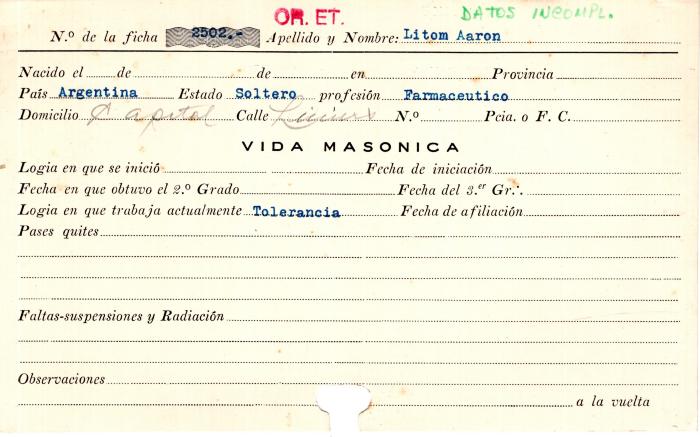 OR. ET. DATOS INCOMPL.
N.º de la ficha 2502.- Apellido y Nombre: Litom Aaron
Nacido el de de en Provincia
País Argentina Estado Soltero profesión Farmaceutico
Domicilio Capital Calle Liniers N.º Pcia. o F. C.
VIDA MASONICA
Logia en que se inició Fecha de iniciación
Fecha en que obtuvo el 2.º Grado Fecha del 3.er Gr∴
Logia en que trabaja actualmente Tolerancia Fecha de afiliación
Pases quites
Faltas-suspensiones y Radiación
Observaciones
a la vuelta